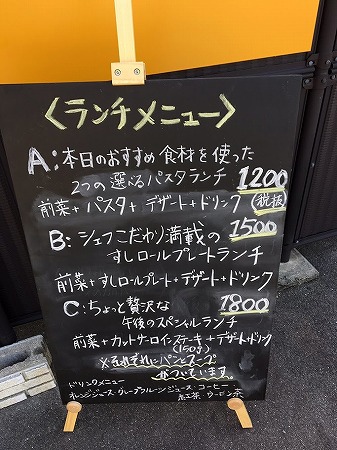 <ランチメニュー>
A:本日のおすすめ食材を使った
2つの選べるパスタランチ 1200
前菜+パスタ+デザート+ドリンク (税抜)
B:シェフこだわり満載の 1500
すしロールプレートランチ
前菜+すしロールプレート+デザート+ドリンク
C:ちょっと贅沢な 1800
午後のスペシャルランチ
前菜+カットサーロインステーキ+デザート+ドリンク
(150g)
※それぞれにパンとスープ
がついています。
ドリンクメニュー
オレンジジュース・グレープフルーツジュース・コーヒー・
紅茶・ウーロン茶